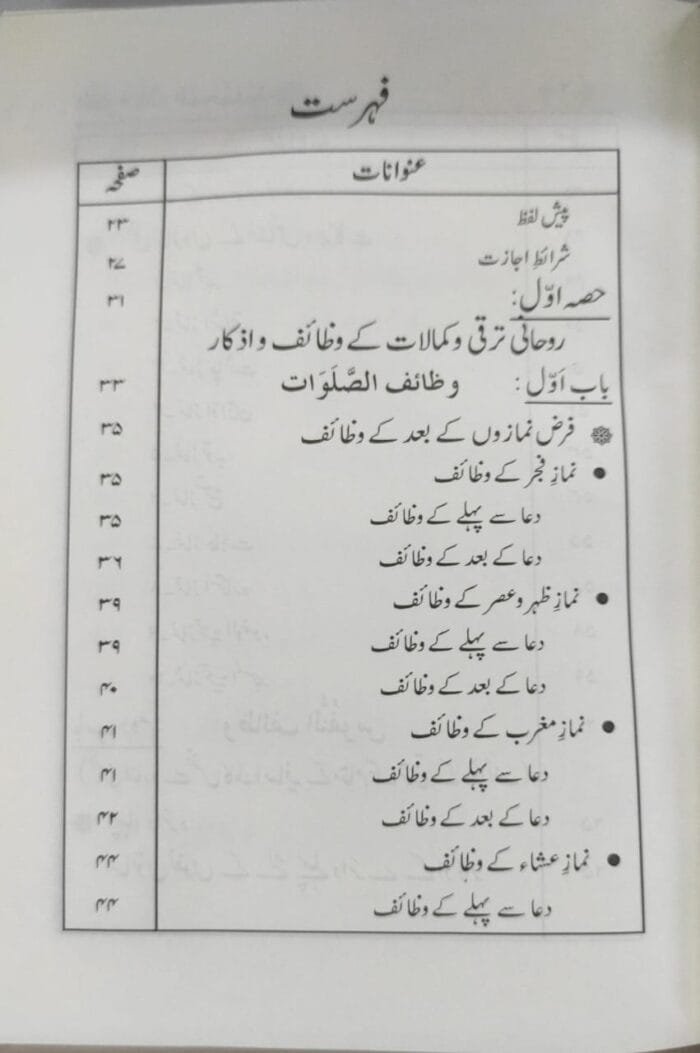 فہرست
عنوانات صفحہ
پیش لفظ ۲۳
شرائطِ اجازت ۲۷
حصہ اوّل: ۳۱
روحانی ترقی و کمالات کے وظائف و اذکار
باب اَوّل: وظائف الصَّلَوَات ۳۳
فرض نمازوں کے بعد کے وظائف ۳۵
• نمازِ فجر کے وظائف ۳۵
دعا سے پہلے کے وظائف ۳۵
دعا کے بعد کے وظائف ۳۶
• نمازِ ظہر و عصر کے وظائف ۳۹
دعا سے پہلے کے وظائف ۳۹
دعا کے بعد کے وظائف ۴۰
• نمازِ مغرب کے وظائف ۴۱
دعا سے پہلے کے وظائف ۴۱
دعا کے بعد کے وظائف ۴۲
• نمازِ عشاء کے وظائف ۴۴
دعا سے پہلے کے وظائف ۴۴